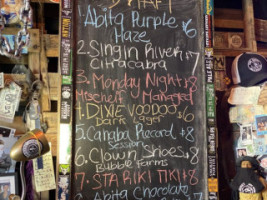 DRAFT
1. Abita Purple $6
Haze
2. Singin River $7
Citracabra
3. Monday Night $8
Mischeif Managed
4. DIXIE VOODOO $6
Dark Lager
5. Canaba Record $6
Session
6. Clown Shoes $8
Bubble Farms
7. STARIKI TIKI $8
Abita Chocolate